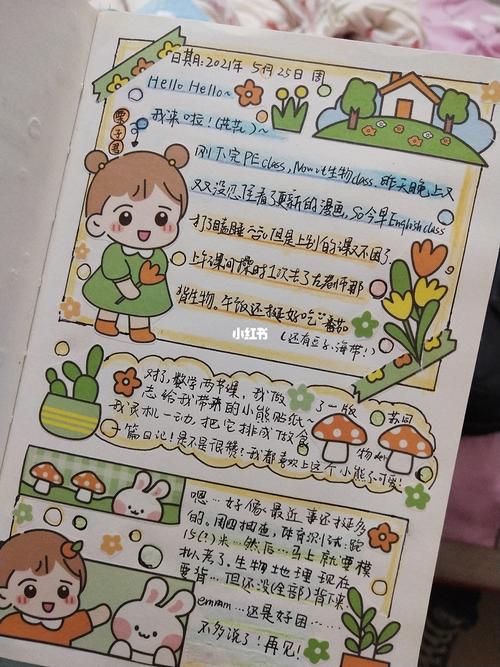 日期:2021年 5月25日 周
Hello Hello~
栗子君
我来啦!(芜芜)~
刚下完PE class, Now it's 生物class. 昨天晚上又
又又没忍住看了更新的漫画, So今早English class
打了瞌睡 但是上别的课又不困了.
上午课间操时1次去了左老师那
背生物。午饭还挺好吃 番茄
(还有豆子、海带!)
小红书
对了,数学两节课,我做了一版
志给我带来的小熊贴纸、
我灵机一动,把它排成做合
一篇日记!是不是很赞?我都喜欢上这个小熊了可爱!
嗯…好像最近事还挺多
的。周四抽查,体育尔1试:跑
15(?)米…然后…马上就要模
拟考了。生物地理现在
要背…但还没(全部)背下来.
emmm…还是好困……
不多说了!再见!